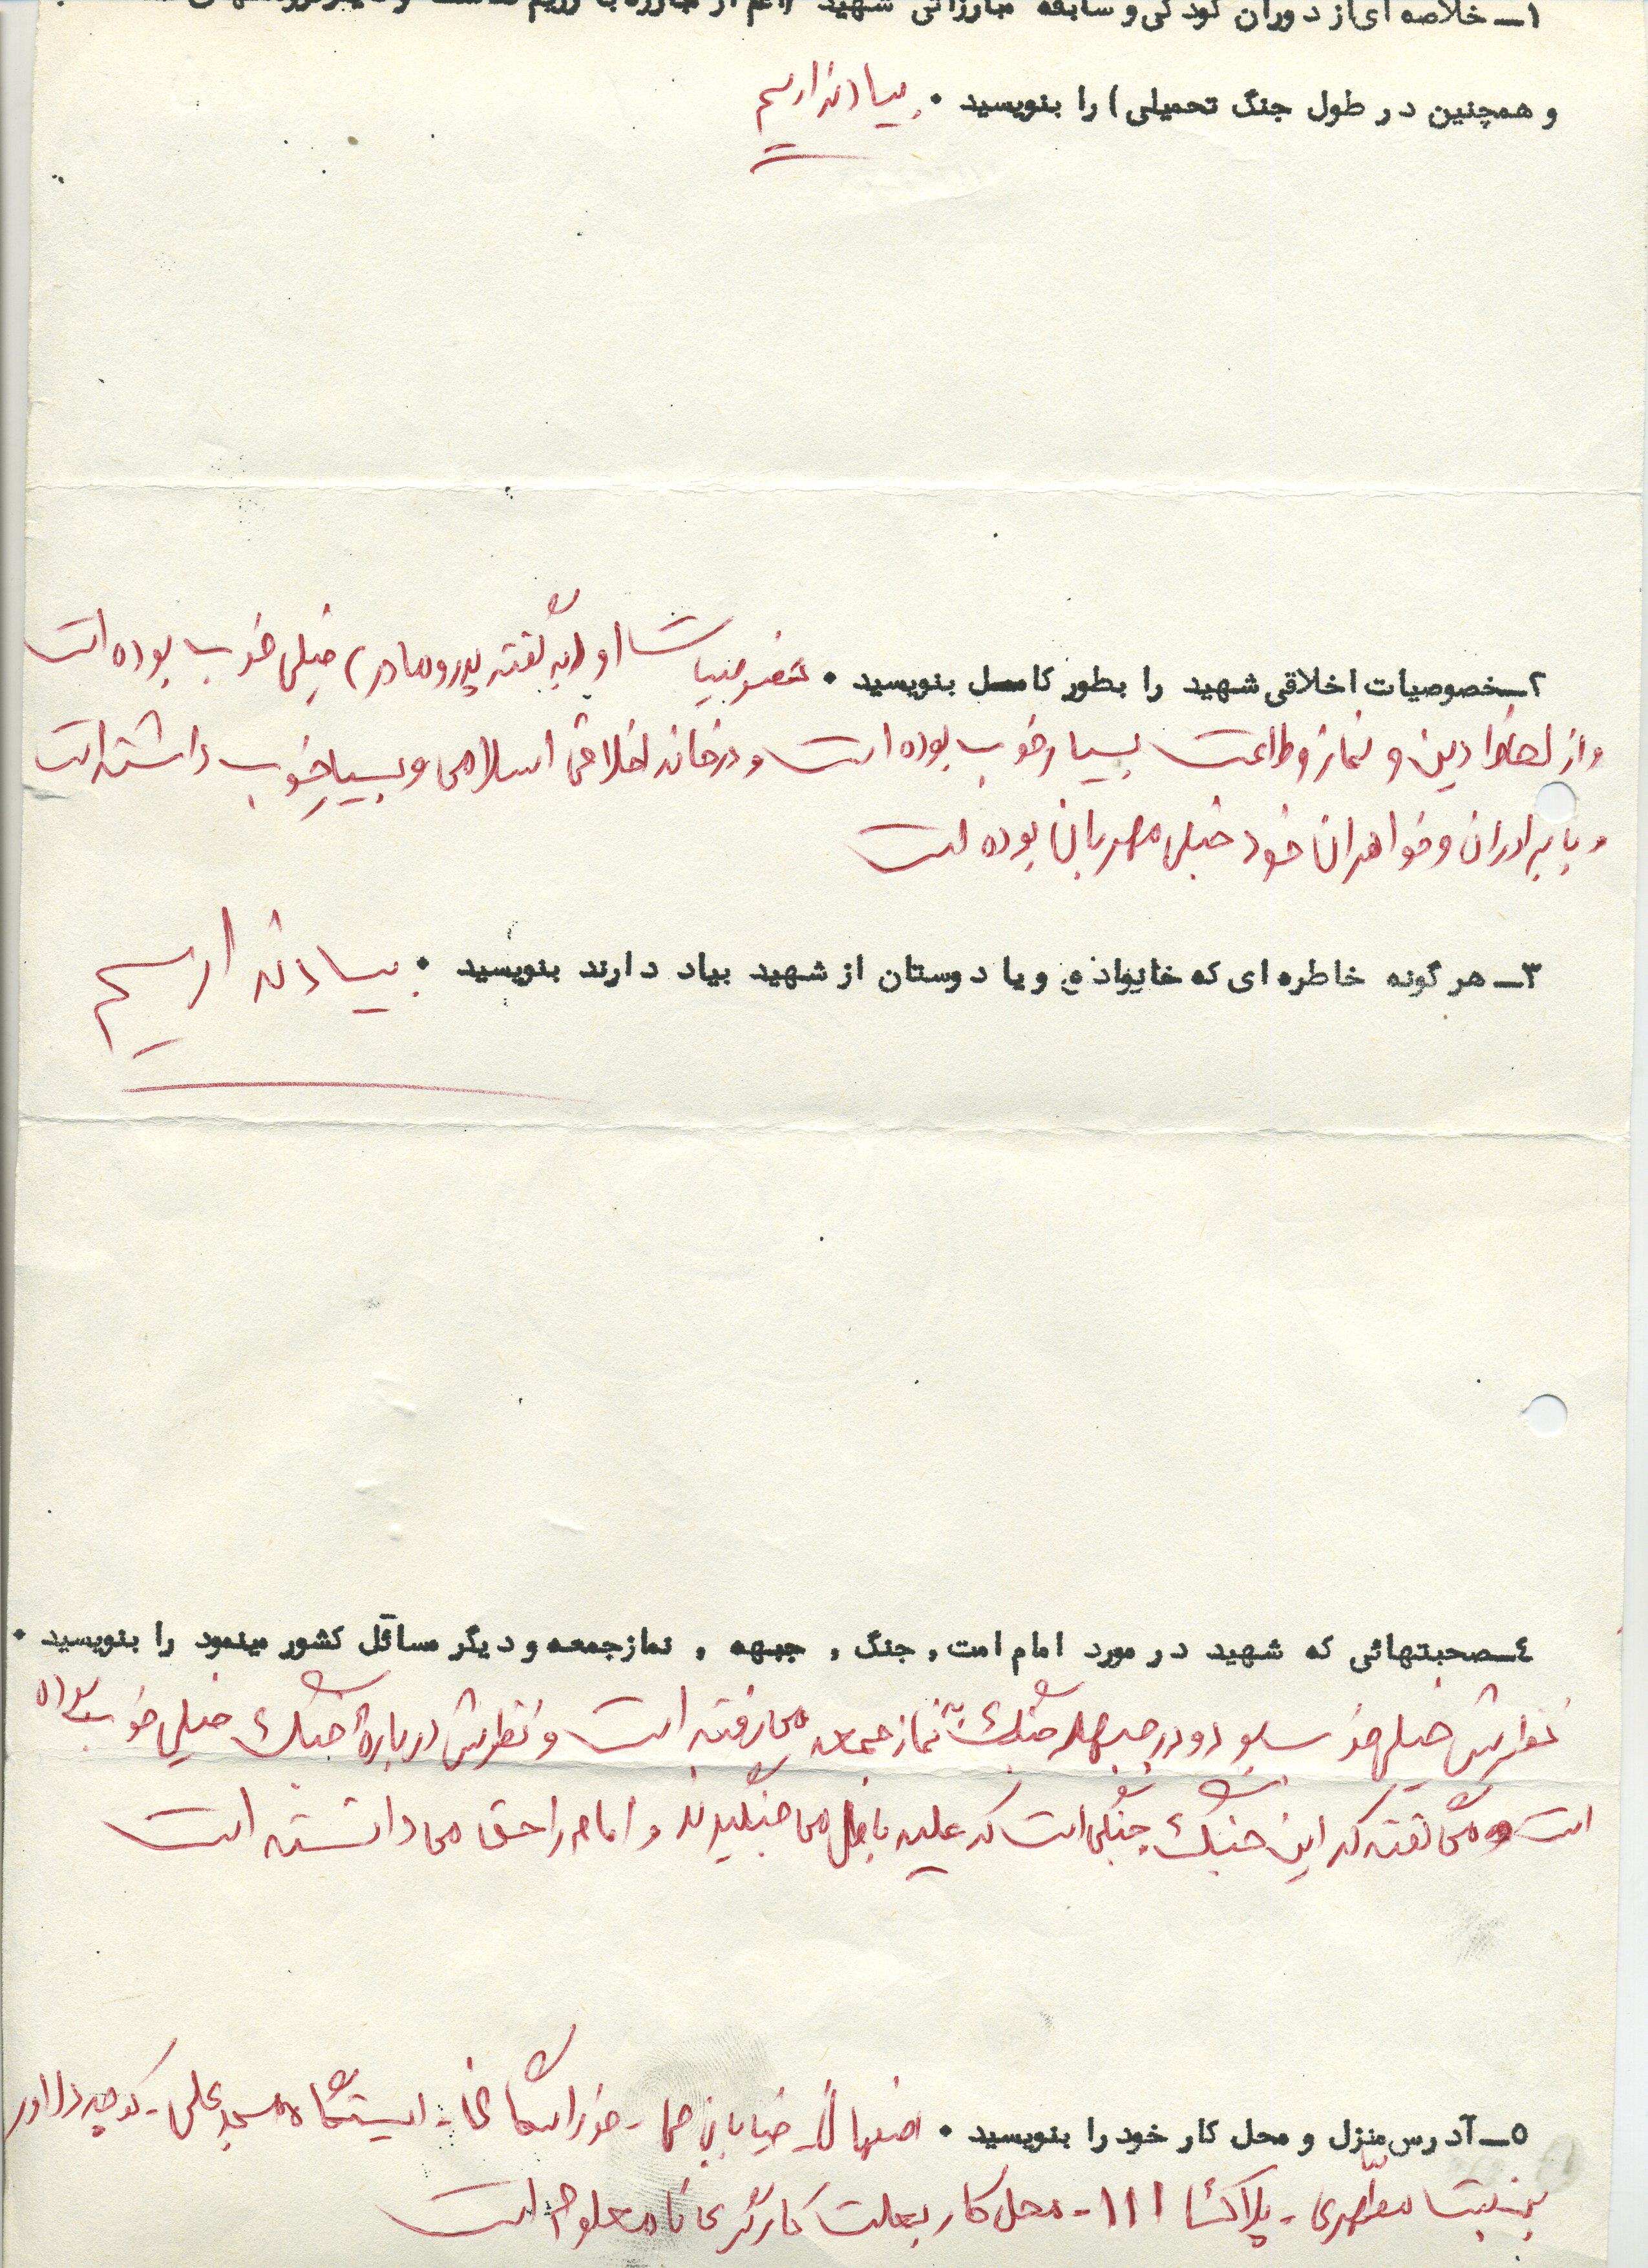 ۱ــ خلاصه ای از دوران کودکی و سابقه مبارزاتی شهید (اعم از مبارزه با رژیم
و همچنین در طول جنگ تحمیلی) را بنویسید • بیاد نداریم
۲ــ خصوصیات اخلاقی شهید را بطور کامل بنویسید • خصوصیات او (به گفته پدر و مادر) خیلی خوب بوده است
و از لحاظ دین و نماز و طاعت بسیار خوب بوده است و در خانه اخلاقی اسلامی و بسیار خوب داشته است
و با برادران و خواهران خود خیلی مهربان بوده است
۳ــ هر گونه خاطره ای که خانواده و یا دوستان از شهید بیاد دارند بنویسید • بیاد نداریم
٤ــ صحبتهائی که شهید در مورد امام امت، جنگ، جبهه، نماز جمعه و دیگر مسائل کشور مینمود را بنویسید •
نظرش خیلی خوب بود و در جبهه جنگ به نماز جمعه می رفته است و نظرش درباره جنگ خیلی خوب بوده
است و می گفته که این جنگ جنگی است که علیه باطل می جنگیدند و امام را حق می دانسته است
٥ــ آدرس منزل و محل کار خود را بنویسید • اصفهان - خیابان جی - خوراسگان - ایستگاه مسجد علی - کوچه
بن بست مطهری - پلاک ۱۱۱ - محل کار بعلت کارگری نامعلوم است